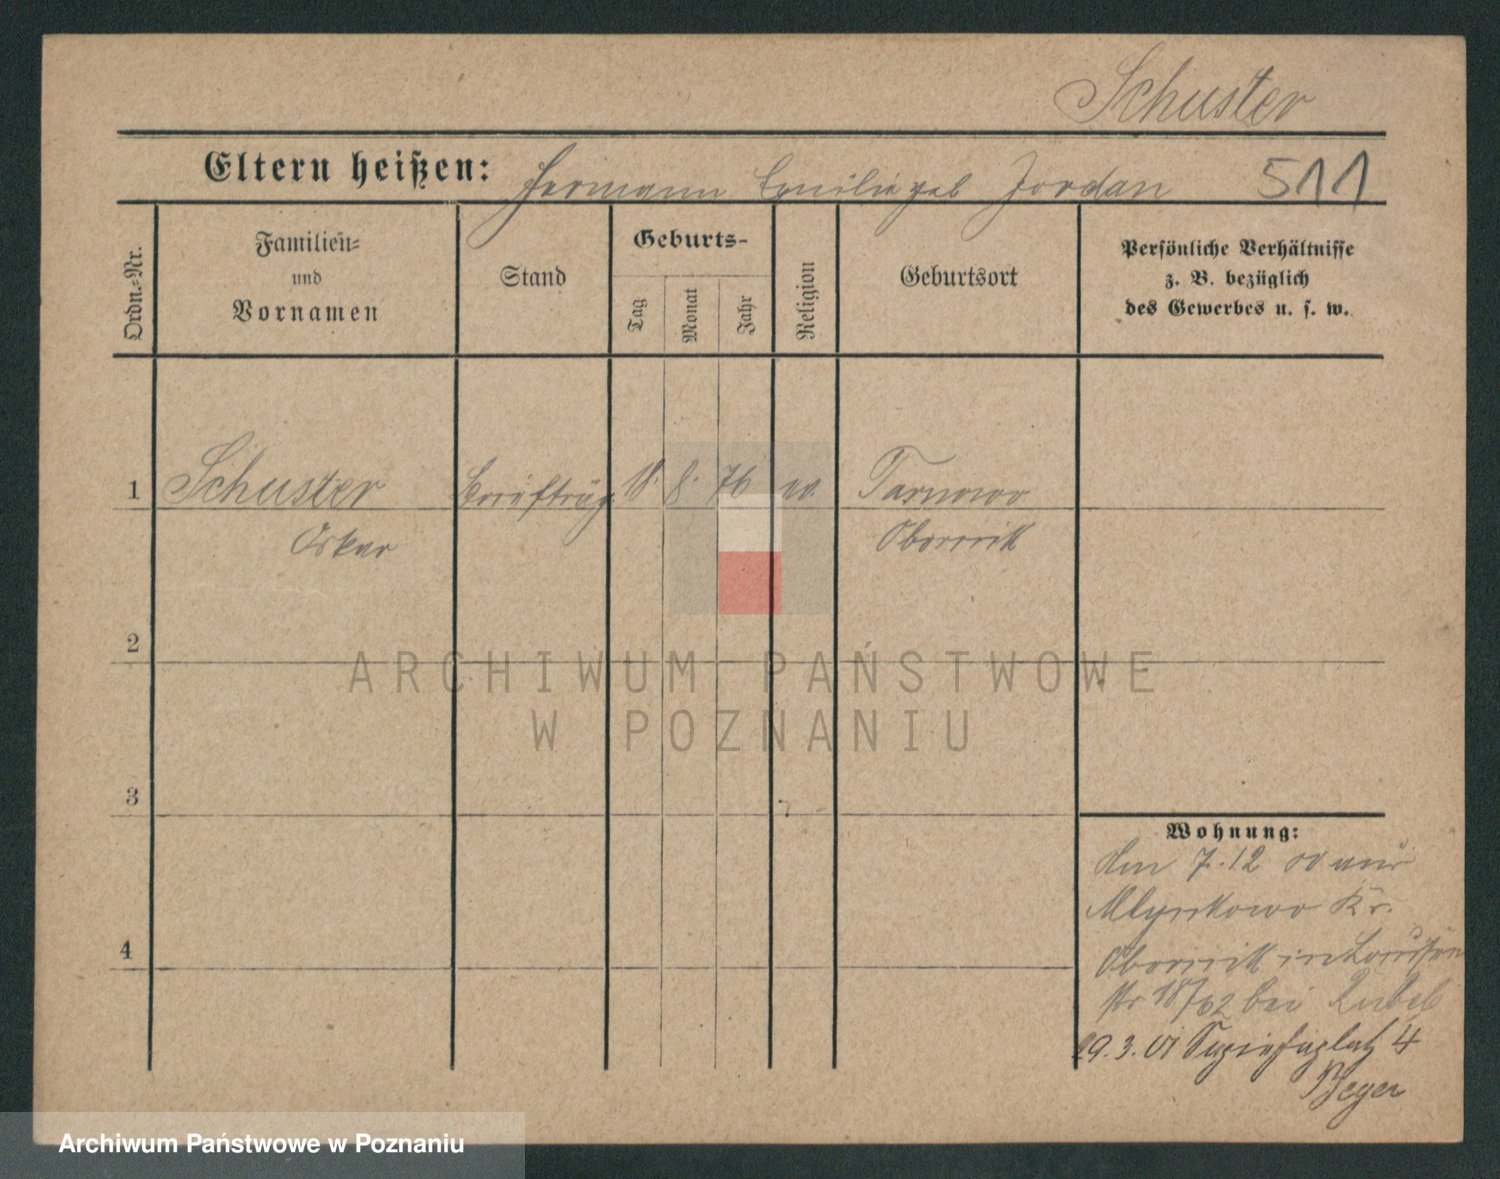 Schuster
Eltern heißen: Hermann Emilie geb Jordan 511
Ordn.-Nr.
Familien-
und
Vornamen
Stand
Geburts-
Tag
Monat
Jahr
Religion
Geburtsort
Persönliche Verhältnisse
z. B. bezüglich
des Gewerbes u. s. w.
1 Schuster 18. 8. 76 ev. Tarnowo
Oskar Obornik
2
3
4
Wohnung:
Am 7.12 00 aus
Mlynkowo Kr.
Obornik in Louisen
str 18/02 bei
29.3.01 4
Beyer
ARCHIWUM PAŃSTWOWE
W POZNANIU
Archiwum Państwowe w Poznaniu